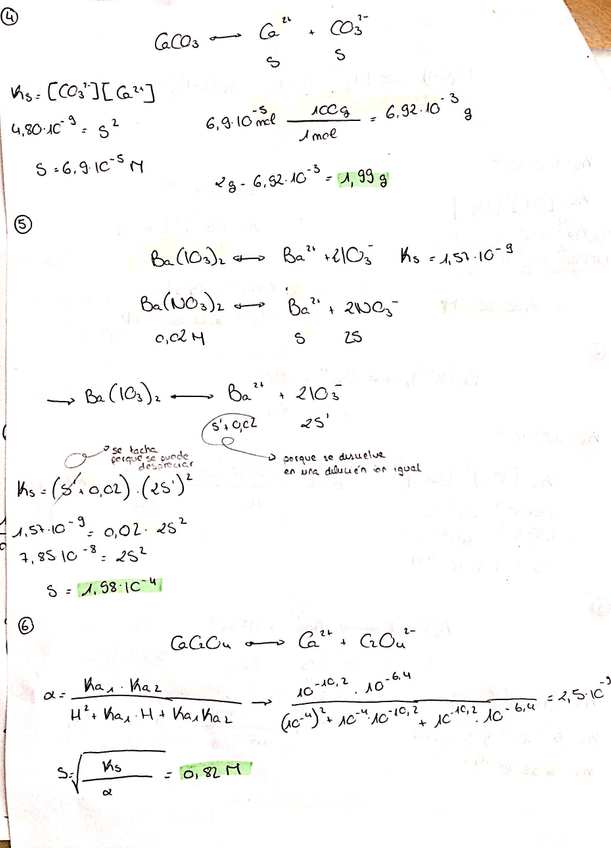 ④
CaCO3 ⟷ Ca²⁺ + CO3²⁻
S S
Ks = [CO3²⁻][Ca²⁺]
4,80·10⁻⁹ = S²
S = 6,9·10⁻⁵ M
6,9·10⁻⁵ mol 100g / 1mol = 6,92·10⁻³ g
2g - 6,92·10⁻³ = 1,99 g
⑤
Ba(IO3)2 ⟷ Ba²⁺ + 2IO3⁻ Ks = 1,57·10⁻⁹
Ba(NO3)2 ⟷ Ba²⁺ + 2NO3⁻
0,02 M S 2S
→ Ba(IO3)2 ⟷ Ba²⁺ + 2IO3⁻
S'+0,02 2S'
se tacha
porque se puede
despreciar
porque se disuelve
en una dilución ion igual
Ks = (S'+0,02)·(2S')²
1,57·10⁻⁹ = 0,02· 2S²
7,85 10⁻⁸ = 2S²
S = 1,98·10⁻⁴
⑥
CaC2O4 ⟷ Ca²⁺ + C2O4²⁻
α = Ka1·Ka2 / H² + Ka1·H + Ka1Ka2 → 10⁻¹⁰'² · 10⁻⁶'⁴ / (10⁻⁴)² + 10⁻⁴·10⁻¹⁰'² + 10⁻¹⁰'² · 10⁻⁶'⁴ = 2,5·10⁻⁹
S = √(Ks / α) = 0,82 M